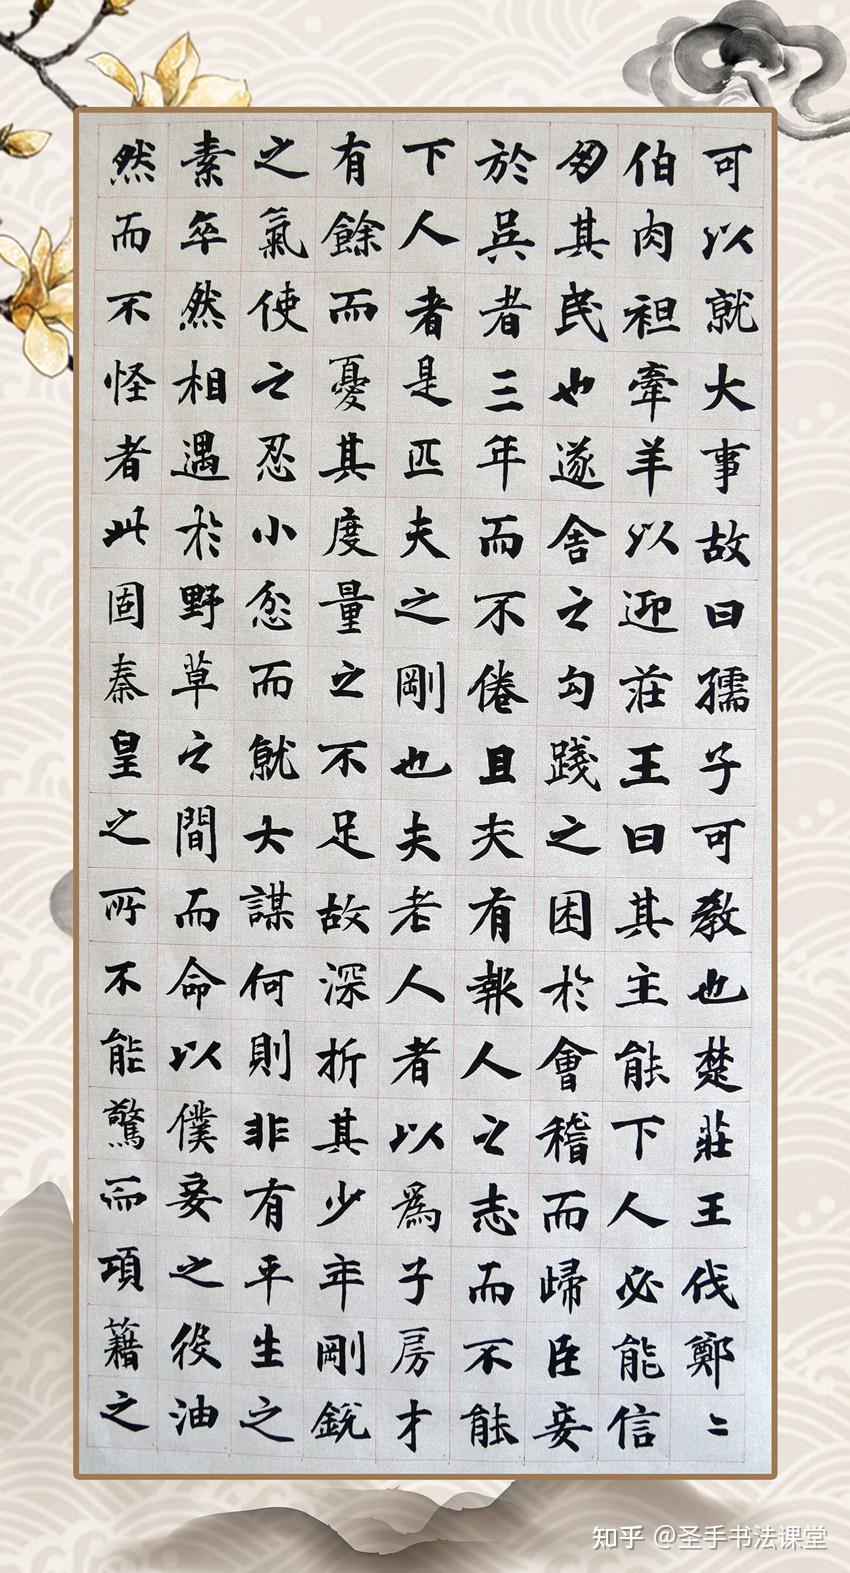 可以就大事故曰孺子可教也楚莊王伐鄭〻
伯肉袒牽羊以迎莊王曰其主能下人必能信
其民也遂舍之勾踐之困於會稽而歸臣妾
於吳者三年而不倦且夫有報人之志而不能
下人者是匹夫之剛也夫老人者以爲子房才
有餘而憂其度量之不足故深折其少年剛銳
之氣使之忍小忿而就大謀何則非有平生之
素卒然相遇於野草之間而命以僕妾之役油
然而不怪者此固秦皇之所不能驚而項籍之
知乎 @圣手书法课堂